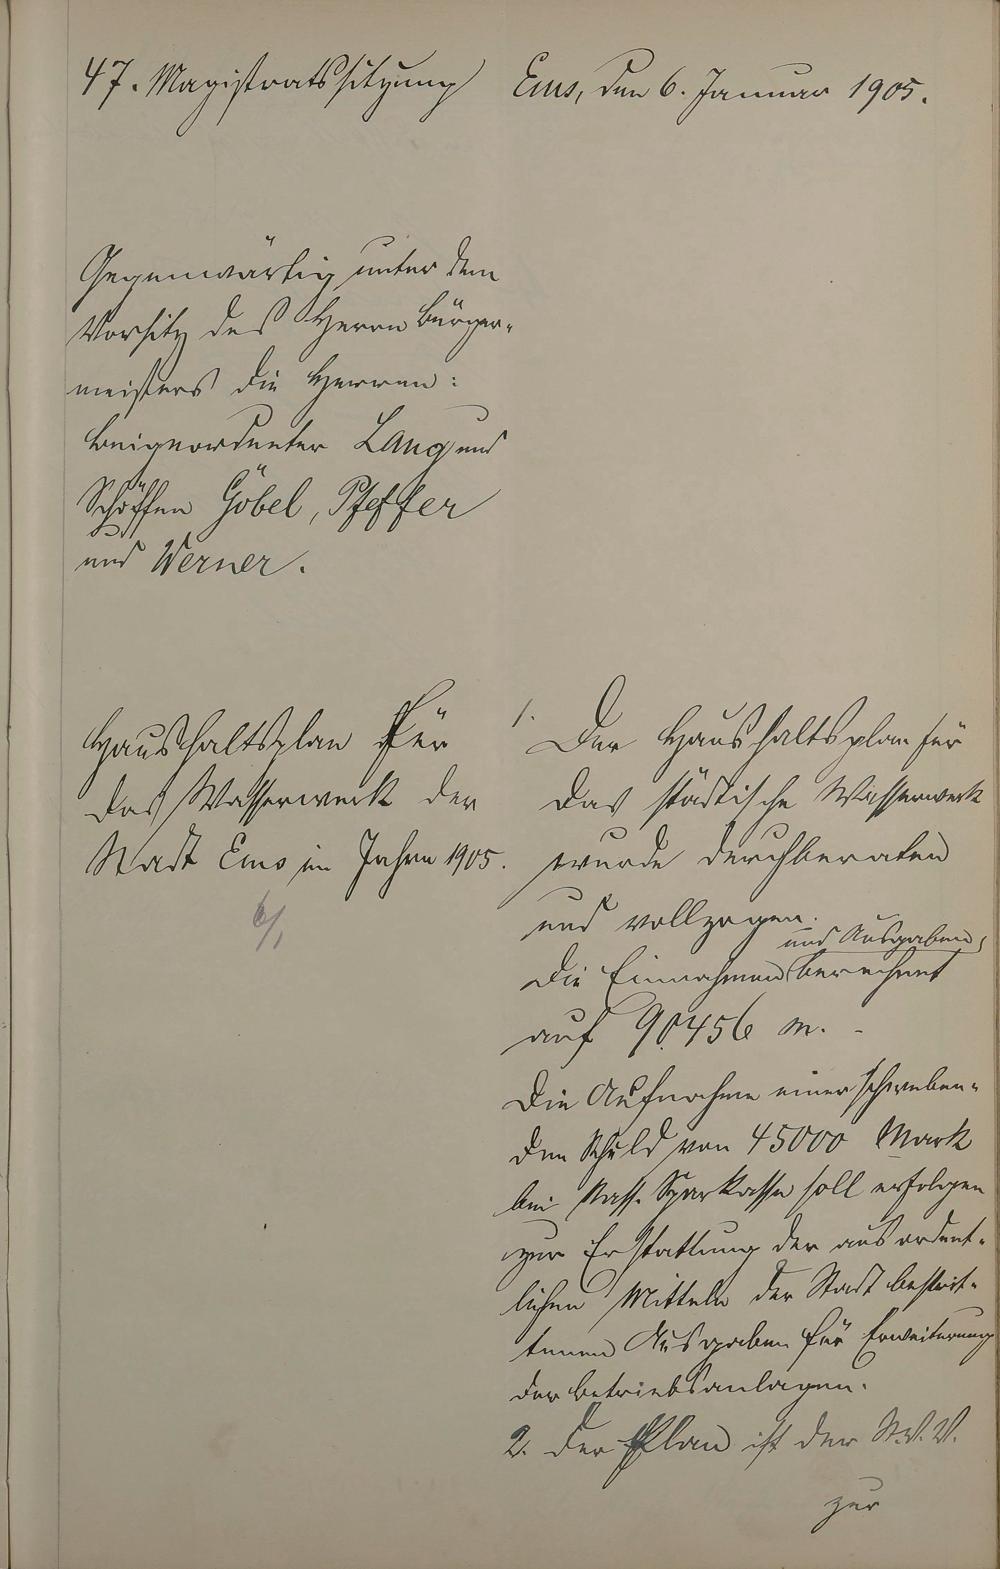 47. Magistratssitzung
Ems, den 6. Januar 1905.
Gegenwärtig unter dem
Vorsitz des Herrn Bürger-
meisters die Herren:
Beigeordneter Lang und
Schöffen Göbel, Pfeffer
und Werner.
Haushaltsplan für
das Wasserwerk der
Stadt Ems im Jahre 1905.
6/1
1.
Der Haushaltsplan für
das städtische Wasserwerk
wurde durchberaten
und vollzogen.
und Ausgaben
Die Einnahmen berechnet
auf 90456 M. -
Die Aufnahme einer schweben-
den Schuld von 45000 Mark
bei Nass. Sparkasse soll erfolgen
zur Erstattung der aus ordent-
lichen Mitteln der Stadt bestrit-
tenen Ausgaben für Erweiterung
der Betriebsanlagen.
2. Der Plan ist der St.V.V.
zur